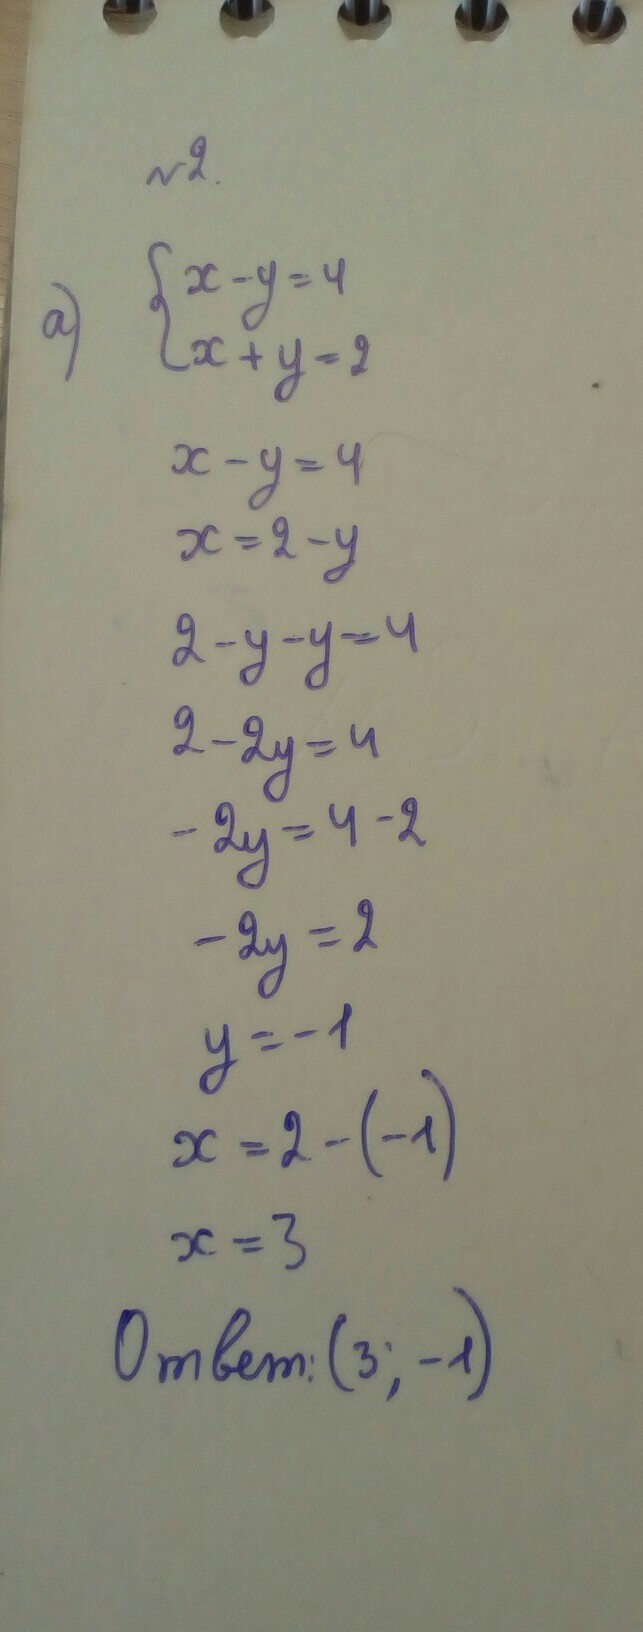 №2.
а) { x - y = 4
x + y = 2
x - y = 4
x = 2 - y
2 - y - y = 4
2 - 2y = 4
- 2y = 4 - 2
- 2y = 2
y = - 1
x = 2 - (-1)
x = 3
Ответ: (3; -1)